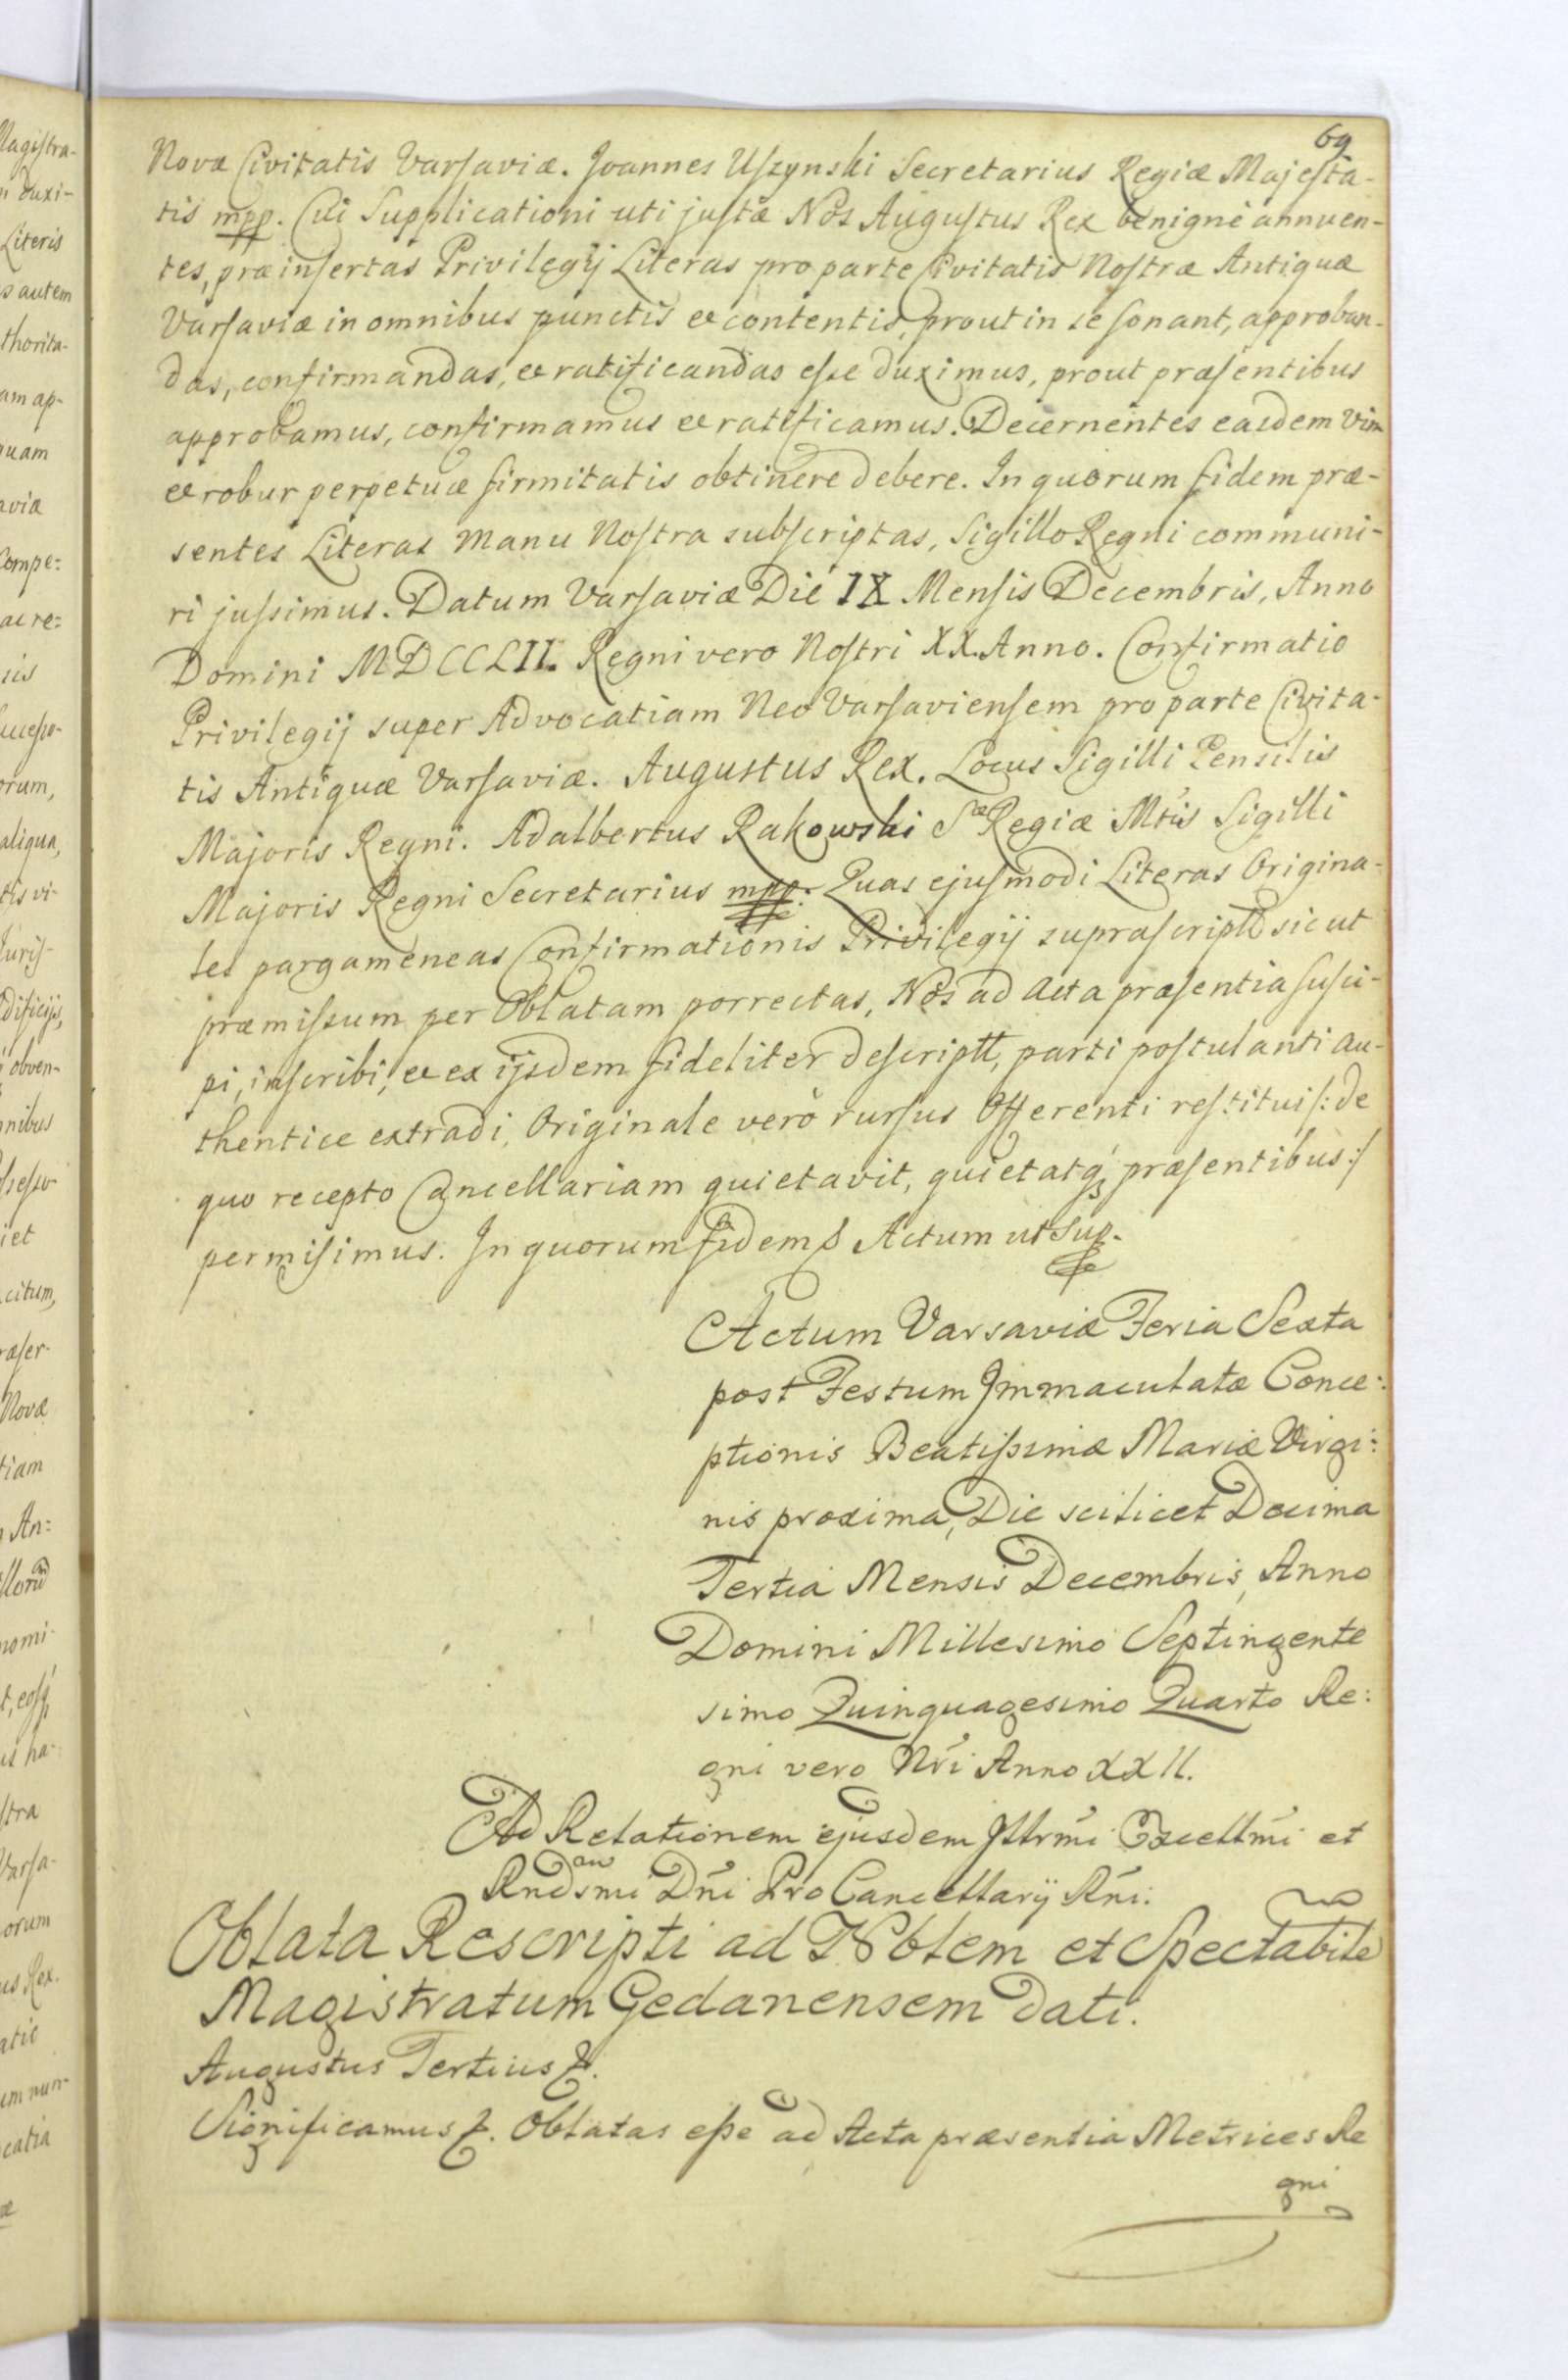 69
Novæ Civitatis Varsaviæ. Joannes Uszynski Secretarius Regiæ Majesta-
tis mpp. Cui Supplicationi uti justæ Nos Augustus Rex benignè annuen-
tes, præinsertas Privilegij Literas pro parte Civitatis Nostræ Antiquæ
Varsaviæ in omnibus punctis et contentis, prout in se sonant, approban-
das, confirmandas, et ratificandas esse duximus, prout præsentibus
approbamus, confirmamus et ratificamus. Decernentes easdem vim
et robur perpetuæ firmitatis obtinere debere. In quorum fidem præ-
sentes Literas Manu Nostra subscriptas, Sigillo Regni communi-
ri jussimus. Datum Varsaviæ Die IX Mensis Decembris, Anno
Domini MDCCLII. Regni vero Nostri XX. Anno. Confirmatio
Privilegij super Advocatiam Neo Varsaviensem pro parte Civita-
tis Antiquæ Varsaviæ. Augustus Rex. Locus Sigilli Pensilis
Majoris Regni. Adalbertus Rakowski Sæ Regiæ Mtis Sigilli
Majoris Regni Secretarius mpp. Quas ejusmodi Literas Origina-
les pargameneas Confirmationis Privilegij suprascriptt sicut
præmissum per Oblatam porrectas, Nos ad Acta præsentia susci-
pi, inscribi, et ex ijsdem fideliter descriptt, parti postulanti au-
thentice extradi, Originale verò rursus Offerenti restitui /: de
quo recepto Cancellariam quietavit, quietatq́ præsentibus :/
permisimus. In quorum fidem & Actum ut sup.
Actum Varsaviæ Feria Sexta
post Festum Immaculatæ Conce:
ptionis Beatissimæ Mariæ Virgi:
nis proxima, Die scilicet Decima
Tertia Mensis Decembris, Anno
Domini Millesimo Septingente
simo Quinquagesimo Quarto Re:
gni vero Nri Anno XXII.
Ad Relationem ejusdem Illrmi Excellmi et
Rndsmi Dni Pro Cancellarij Rni:
Oblata Rescripti ad Noblem et Spectabile
Magistratum Gedanensem dati.
Augustus Tertius &.
Significamus &. Oblatas esse ad Acta præsentia Metrices Re
gni